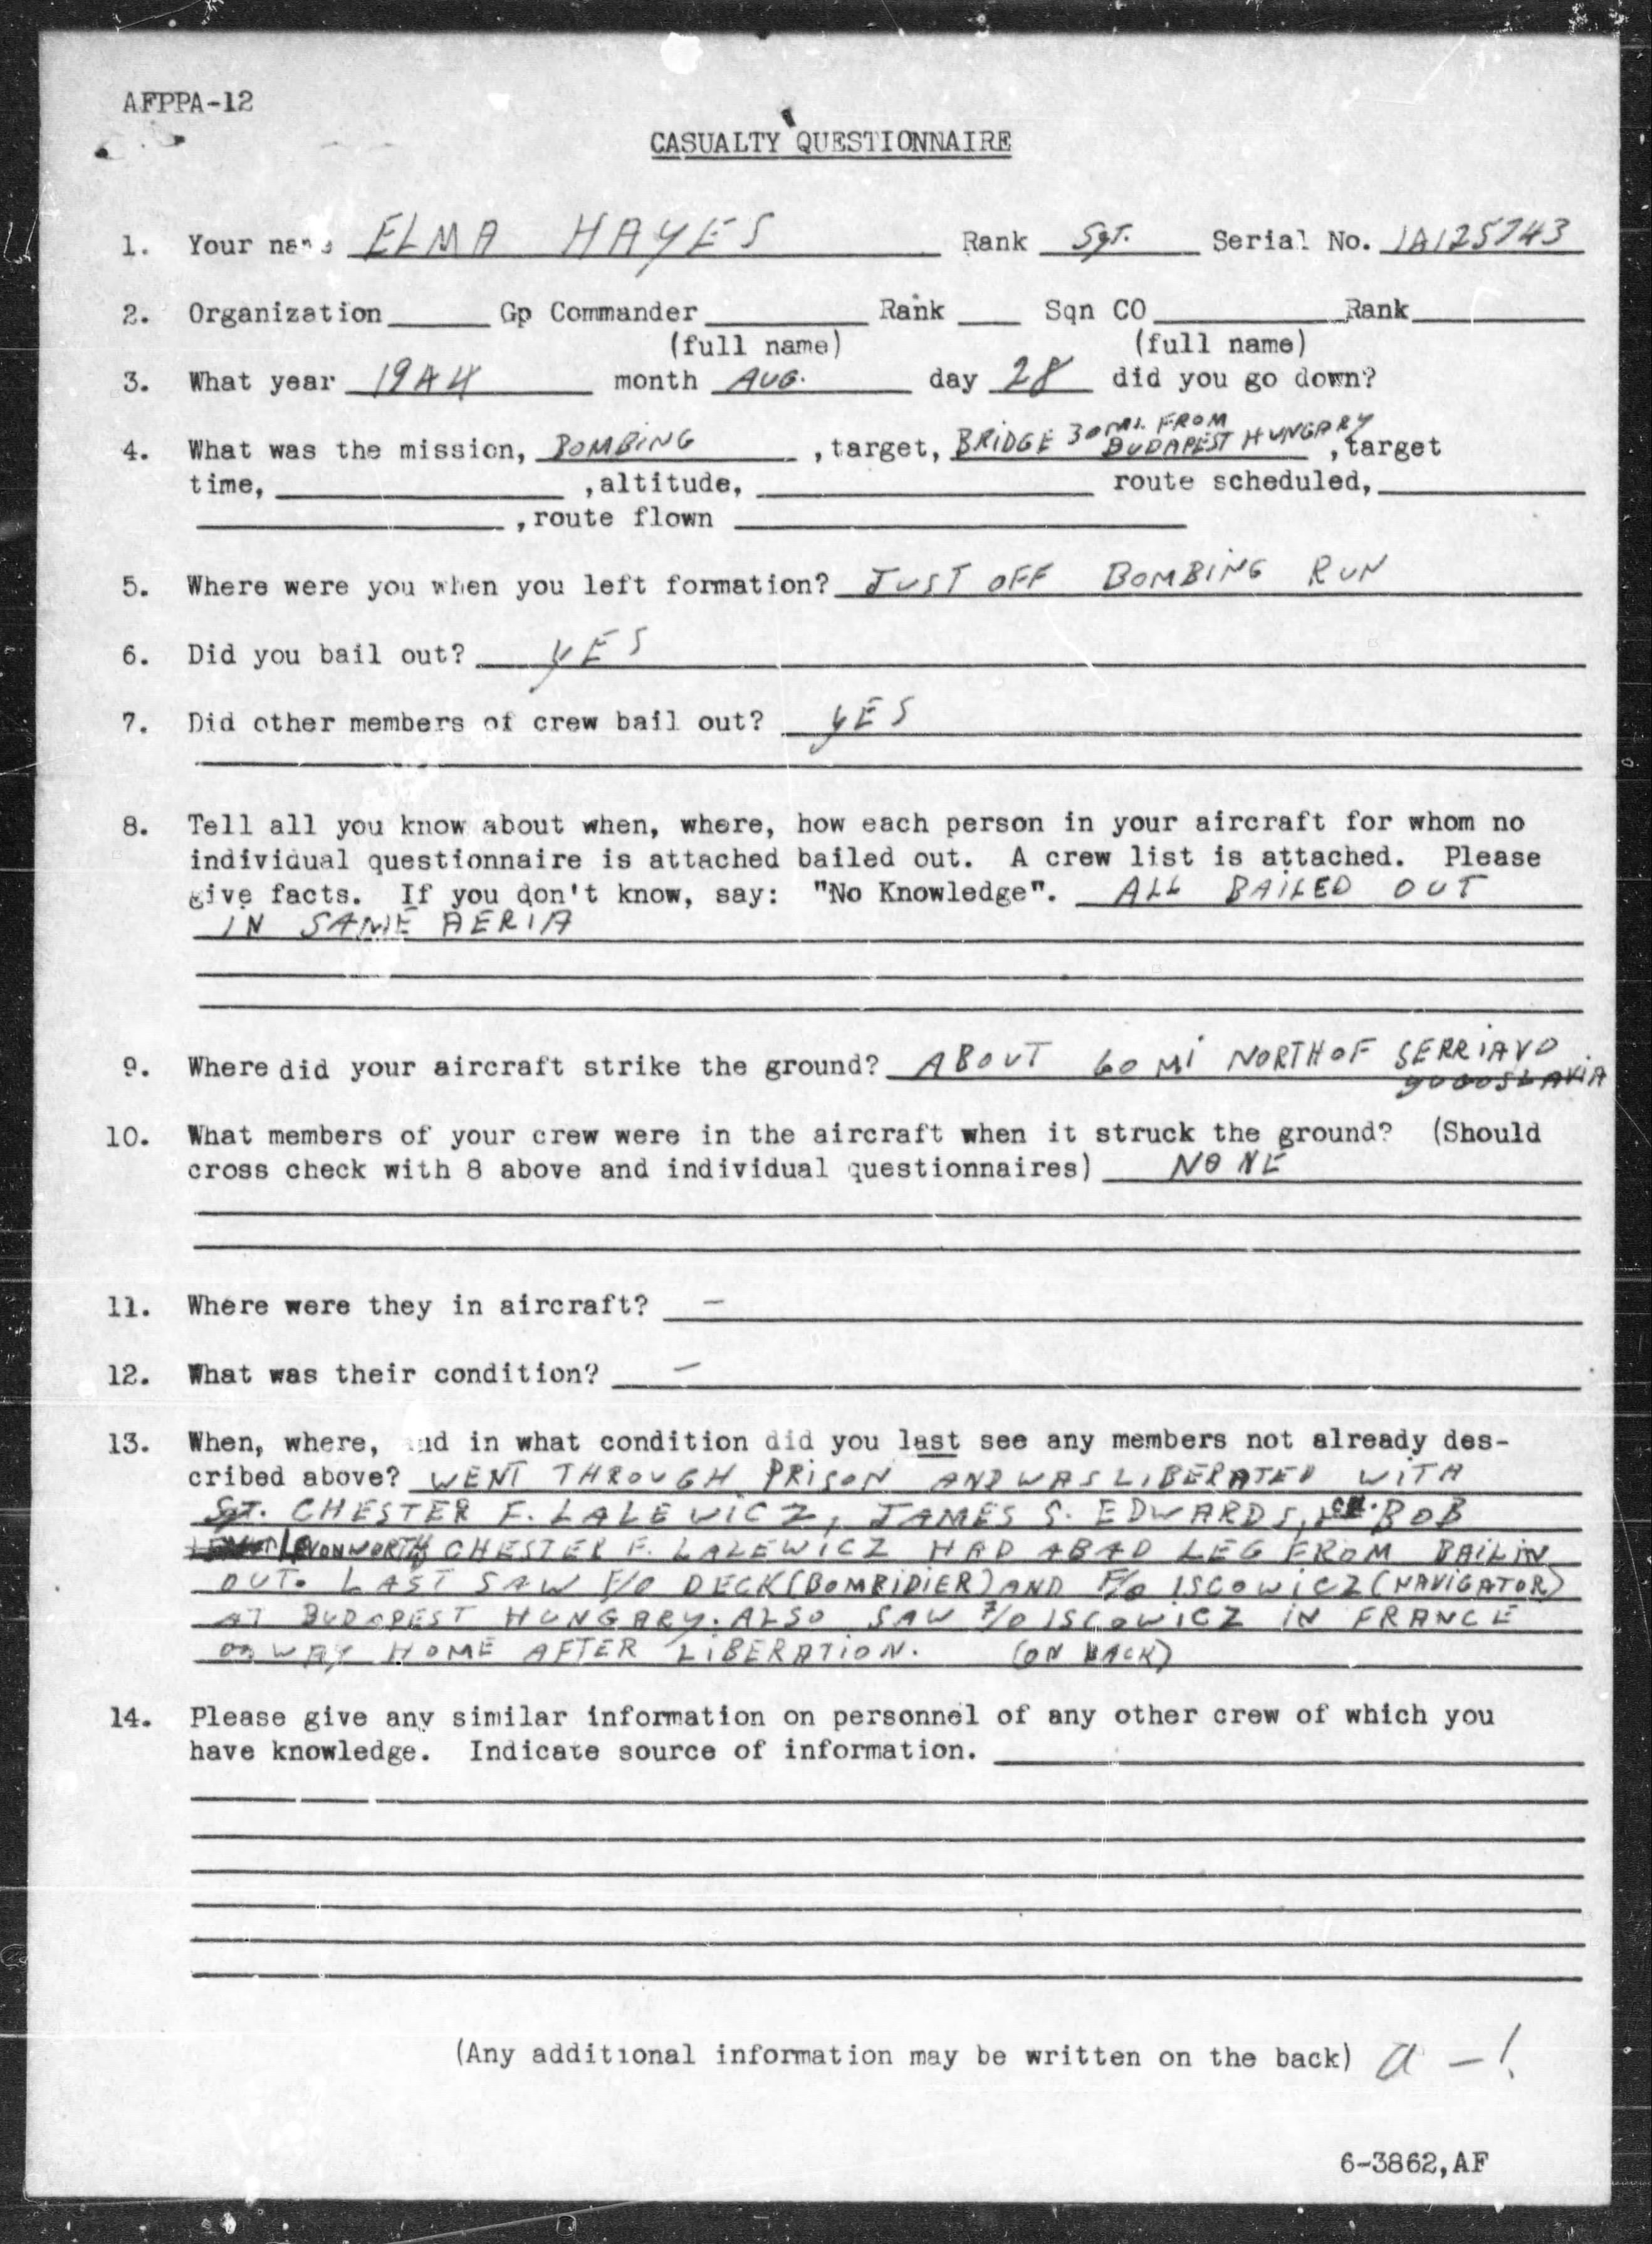 AFPPA-12
CASUALTY QUESTIONNAIRE
1. Your name ELMA HAYES Rank Sgt. Serial No. 1A125743
2. Organization Gp Commander Rank Sqn CO Rank
(full name) (full name)
3. What year 1944 month AUG. day 28 did you go down?
4. What was the mission, BOMBING , target, BRIDGE 30 MI. FROM BUDAPEST HUNGARY , target
time, , altitude, route scheduled,
, route flown
5. Where were you when you left formation? JUST OFF BOMBING RUN
6. Did you bail out? YES
7. Did other members of crew bail out? YES
8. Tell all you know about when, where, how each person in your aircraft for whom no
individual questionnaire is attached bailed out. A crew list is attached. Please
give facts. If you don't know, say: "No Knowledge". ALL BAILED OUT
IN SAME AERIA
9. Where did your aircraft strike the ground? ABOUT 60 MI NORTH OF SERRIAVO
YUGOSLAVIA
10. What members of your crew were in the aircraft when it struck the ground? (Should
cross check with 8 above and individual questionnaires) NONE
11. Where were they in aircraft? -
12. What was their condition? -
13. When, where, and in what condition did you last see any members not already des-
cribed above? WENT THROUGH PRISON AND WAS LIBERATED WITH
SGT. CHESTER F. LALEWICZ, JAMES S. EDWARDS, BOB
CHESTER F. LALEWICZ HAD A BAD LEG FROM BAILIN
OUT. LAST SAW F/O DECK (BOMBIDIER) AND F/O ISCOWICZ (NAVIGATOR)
AT BUDAPEST HUNGARY. ALSO SAW F/O ISCOWICZ IN FRANCE
ON WAY HOME AFTER LIBERATION. (ON BACK)
14. Please give any similar information on personnel of any other crew of which you
have knowledge. Indicate source of information.
(Any additional information may be written on the back)
6-3862,AF